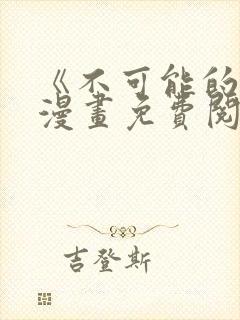 《不可能的
漫畫免費閱
吉登斯